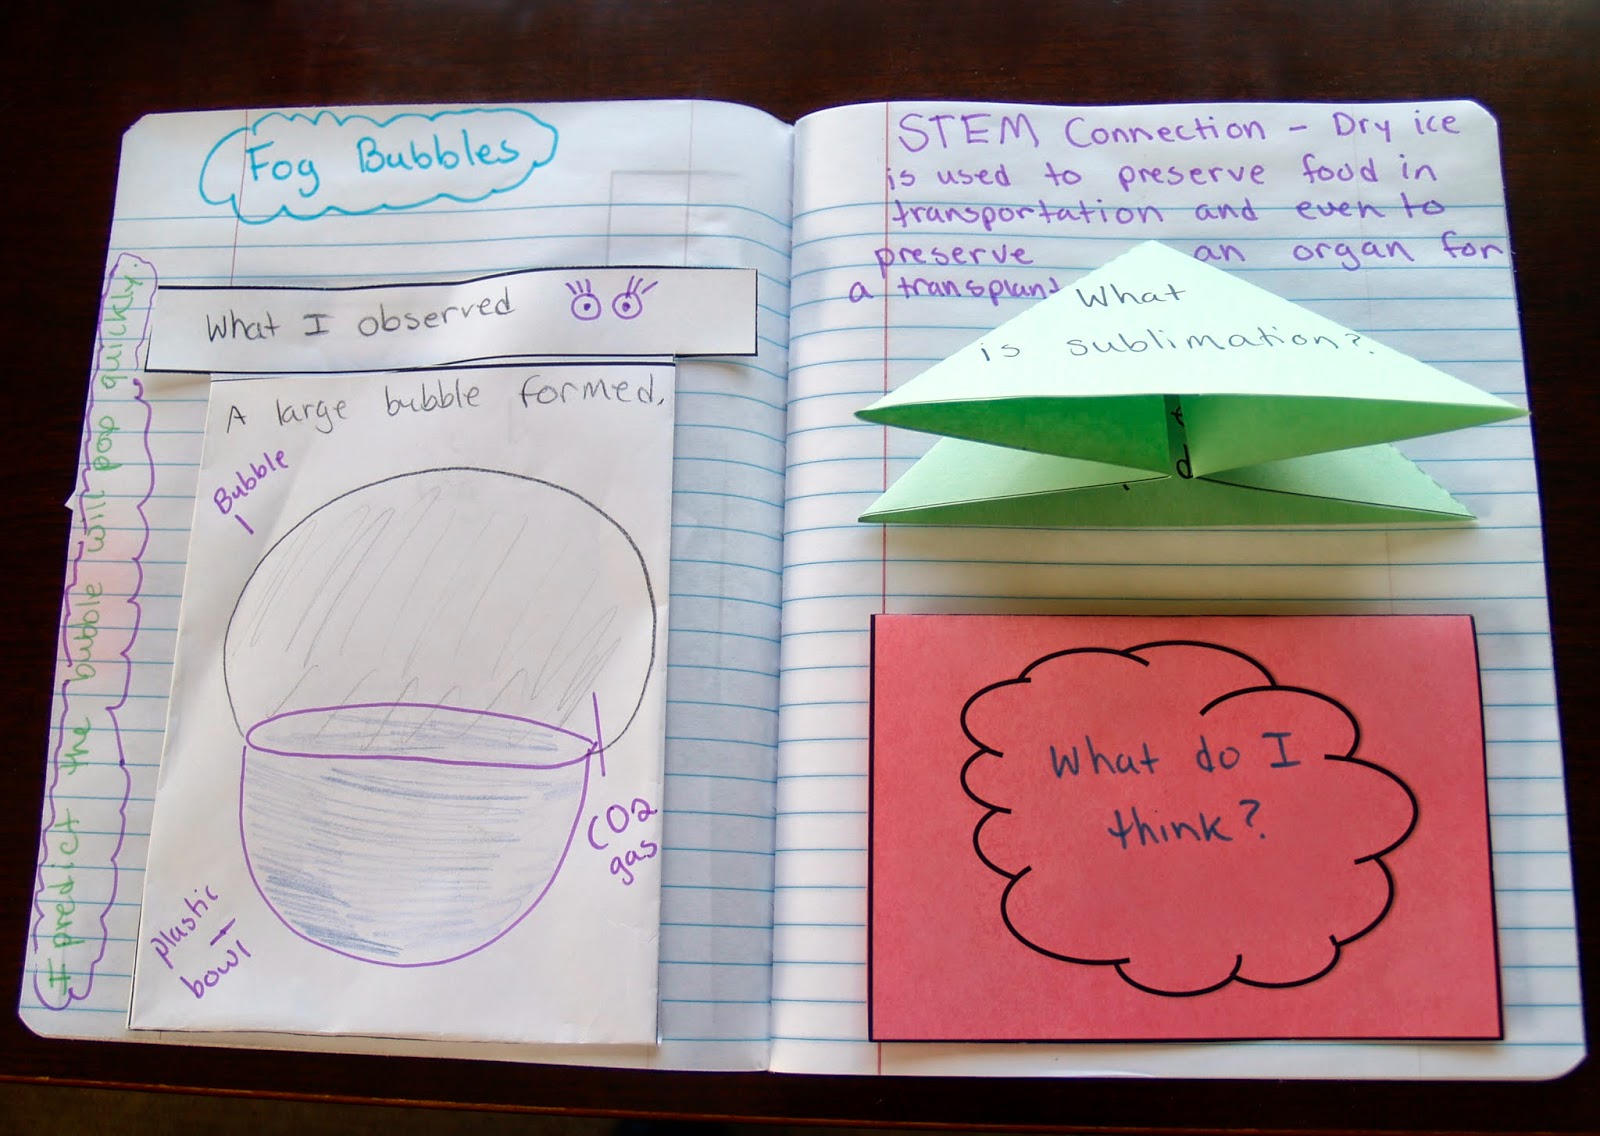 Fog Bubbles
I predict the bubble will pop quickly.
What I observed
A large bubble formed.
Bubble
CO2
gas
plastic
bowl
STEM Connection - Dry ice
is used to preserve food in
transportation and even to
preserve an organ for
a transplant
What
is sublimation?
d
What do I
think?